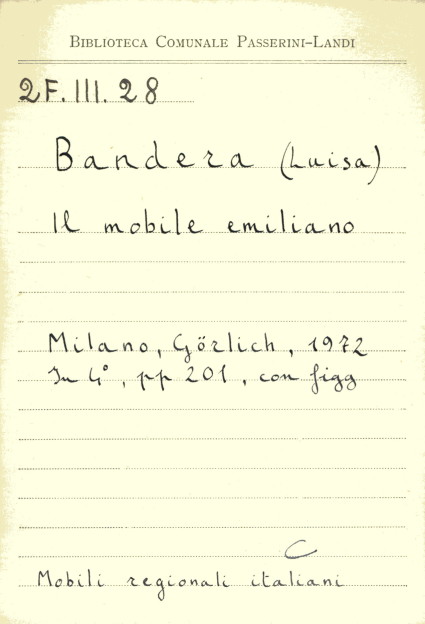 BIBLIOTECA COMUNALE PASSERINI-LANDI
2F.III.28
Bandera (Luisa)
Il mobile emiliano
Milano, Görlich, 1972
In 4°, pp 201, con figg
C
Mobili regionali italiani